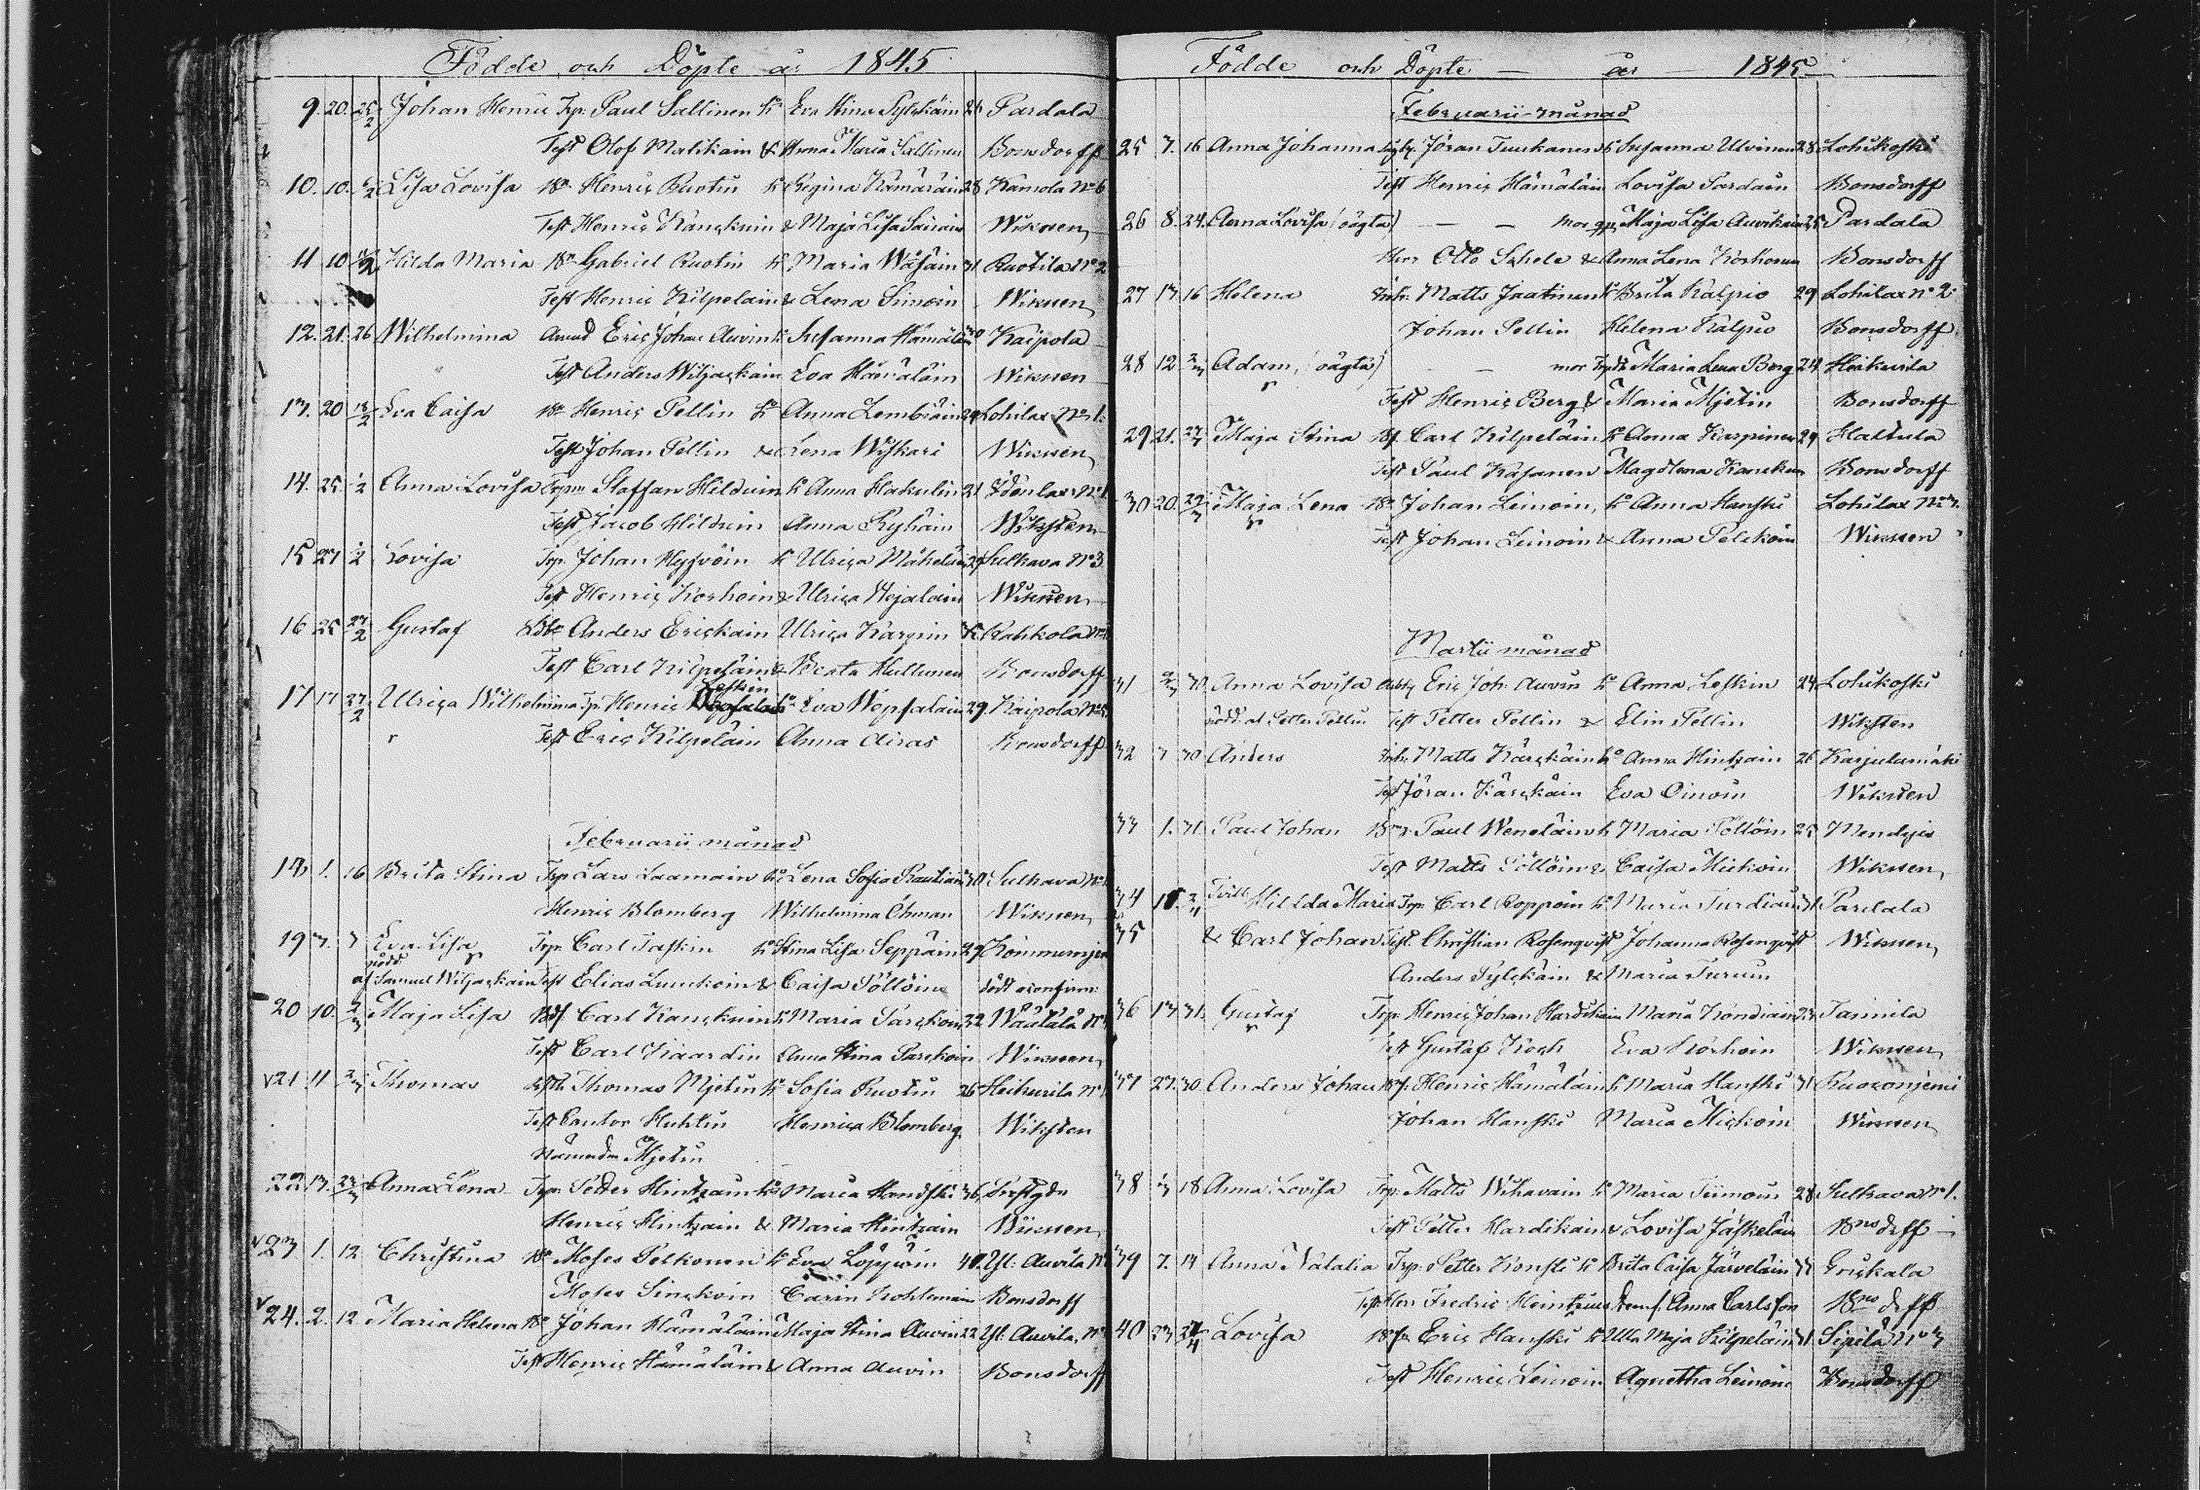 Födde och Döpte år 1845
9. 20. 25/2 Johan Henric Trp. Paul Sallinen h. Eva Stina Pylckäin 26 Pardala
Test Olof Malikain & Anna Maria Sallinen Bonsdorff
10. 10. /2 Lisa Lovisa Henric Ruotin h. Regina Kämäräin 28 Kansola No 6
Test Henric Kanckuin & Maja Lisa Wiksten
11 10 /2 Hilda Maria Gabriel Ruotin h. Maria Wäsäin 31 Ruotila No 2
Test Henric Kilpeläin & Lena Simoin Wiksten
12. 21. 26 Wilhelmina Eric Johan Auvin h. Susanna Hämäläin Kaipola
Test Anders Wiljackain Eva Hämäläin Wiksten
13. 20 /2 Eva Caisa Henric Pellin h. Anna Lembiäin Lohilax No 1.
Test Johan Pellin & Lena Wiskari Wiksten
14. 25 /2 Anna Lovisa Staffan Hilduin h. Anna Hakulin 21 No 1
Test Jacob Hilduin Anna Ryhäin Wiksten
15 27 /2 Lovisa Trp. Johan h. Ulrica Mäkeläin Sulkava No 3.
Test Henric Korhoin & Ulrica Wiksten
16 25 27/2 Gustaf Anders Erickain Ulrica Kahkola
Test Carl Kilpeläin & Beata Hultunen Bonsdorff
Leskin
17 17 27/2 Ulrica Wilhelmina Trp. Henric h. Eva Wepsäläin 29. Kaipola
Test Eric Kilpeläin Anna Airas Bonsdorff
Februarii månad
18 1. 16 Brita Stina Trp. Lars Laamain h. Lena Sofia Rautiain Sulkava
Henric Blomberg Wilhelmina Öhman Wiksten
19 3. Eva Lisa Trp. Carl Taskin h. Stina Lisa Seppäin
nödd
af Samuel Wiljackain Test Elias & Caisa Pöllöin dödt oconfirm.
20 10. 2/3 Maja Lisa Carl Kanckuin h. Maria 32 Wäätälä
Test Carl Kaardin Anna Stina Wiksten
21 11 2/3 Thomas Thomas Mjetin h. Sofia Ruotin 26 Heikurila
Test Cantor Huhtin Henrica Blomberg Wiksten
Nämndm Mjetin
22 13. 23/3 Anna Lena Trp. Petter Hintzain h. Maria 36
Henric Hintzain & Maria Hintzain Wiksten
23 1. 12 Christina Moses Pelkonen h. Eva 40. Yl: Auvila
Moses Sinckoin Carin Bonsdorff
24. 2. 12 Maria Helena Johan Hämäläin Maja Stina Auvin 22 Yl: Auvila, No
Test Henric Hämäläin & Anna Auvin Bonsdorff
Födde och Döpte — år — 1845
Februarii månad
25 7. 16 Anna Johanna Jöran Tuuskanen h. Susanna Ulvinen 28 Lohikoski
Test Henric Hämäläin Lovisa Pardain Bonsdorff
26 8. 24. Anna Lovisa (oägta) — — mor Maja Lisa Auvikain 25 Pardala
Herr Otto Schele & Anna Lena Korhonen Bonsdorff
27 13 16 Helena Inh. Matts Jaatinen h. Brita Kalpio 29 Lohilax No 2
Johan Pellin Helena Kalpio Bonsdorff
28 12 2/3 Adam, (oägta) — mor Maria Lena Berg 24 Heikurila
Test Henric Berg & Maria Mjetin Bonsdorff
29 21. Maja Stina Carl Kilpeläin h. Anna Karpinen 29 Hallula
Test Paul Kasanen Magdlena Bonsdorff
30 20. Maja Lena Johan Leinoin, h. Anna Hanski Lohilax No 3.
Test Johan Leinoin & Anna Pelckoin Wiksten
Martii månad
31 2/3 30 Anna Lovisa Eric Joh. Auvin h. Anna Leskin 24 Lohikoski
nödd. af Petter Pellin Test Petter Pellin & Elin Pellin Wiksten
32 3 30 Anders Inh. Matts Kärckäin h. Anna Hintzain 26 Karjulamäki
Test Jöran Kärckäin Eva Oinoin Wiksten
33 1. 31 Paul Johan Paul Weneläin h. Maria Pöllöin 25
Test Matts Pöllöin & Caisa Mickoin Wiksten
34 10. 2/4 Tvill. Hilda Maria Trp. Carl Roppoin h. Maria Turdiain 31. Pardala
35 & Carl Johan Test. Christian Rosenqvist Johanna Rosenqvist Wiksten
Anders Pylckäin & Maria Turuin
36 13 31. Gustaf Trp. Henric Johan Hardikain Maria Kondiain 23 Tannila
Test Gustaf Koch Eva Korhoin Wiksten
37 27. 30 Anders Johan Henric Hämäläin h. Maria Hanski 31 Kuosonjemi
Johan Hanski Maria Mickoin Wiksten
38 /3 18 Anna Lovisa Trp. Matts Wihavain h. Maria Tiimoin 28 Sulkava No 1.
Test Petter Hardikain & Lovisa Jäskeläin Bnsdrff
39 7. 14 Anna Natalia Trp. Petter Konski h. Brita Caisa Järveläin Erickala
Test Herr Fredric Heintzius Anna Carlsson Bnsdrff
40 23 /4 Lovisa Eric Hanski h. Ulla Maja Kilpeläin 31. Sipilä No 3
Test Henric Leinoin Agnetha Leinoin Bonsdorff